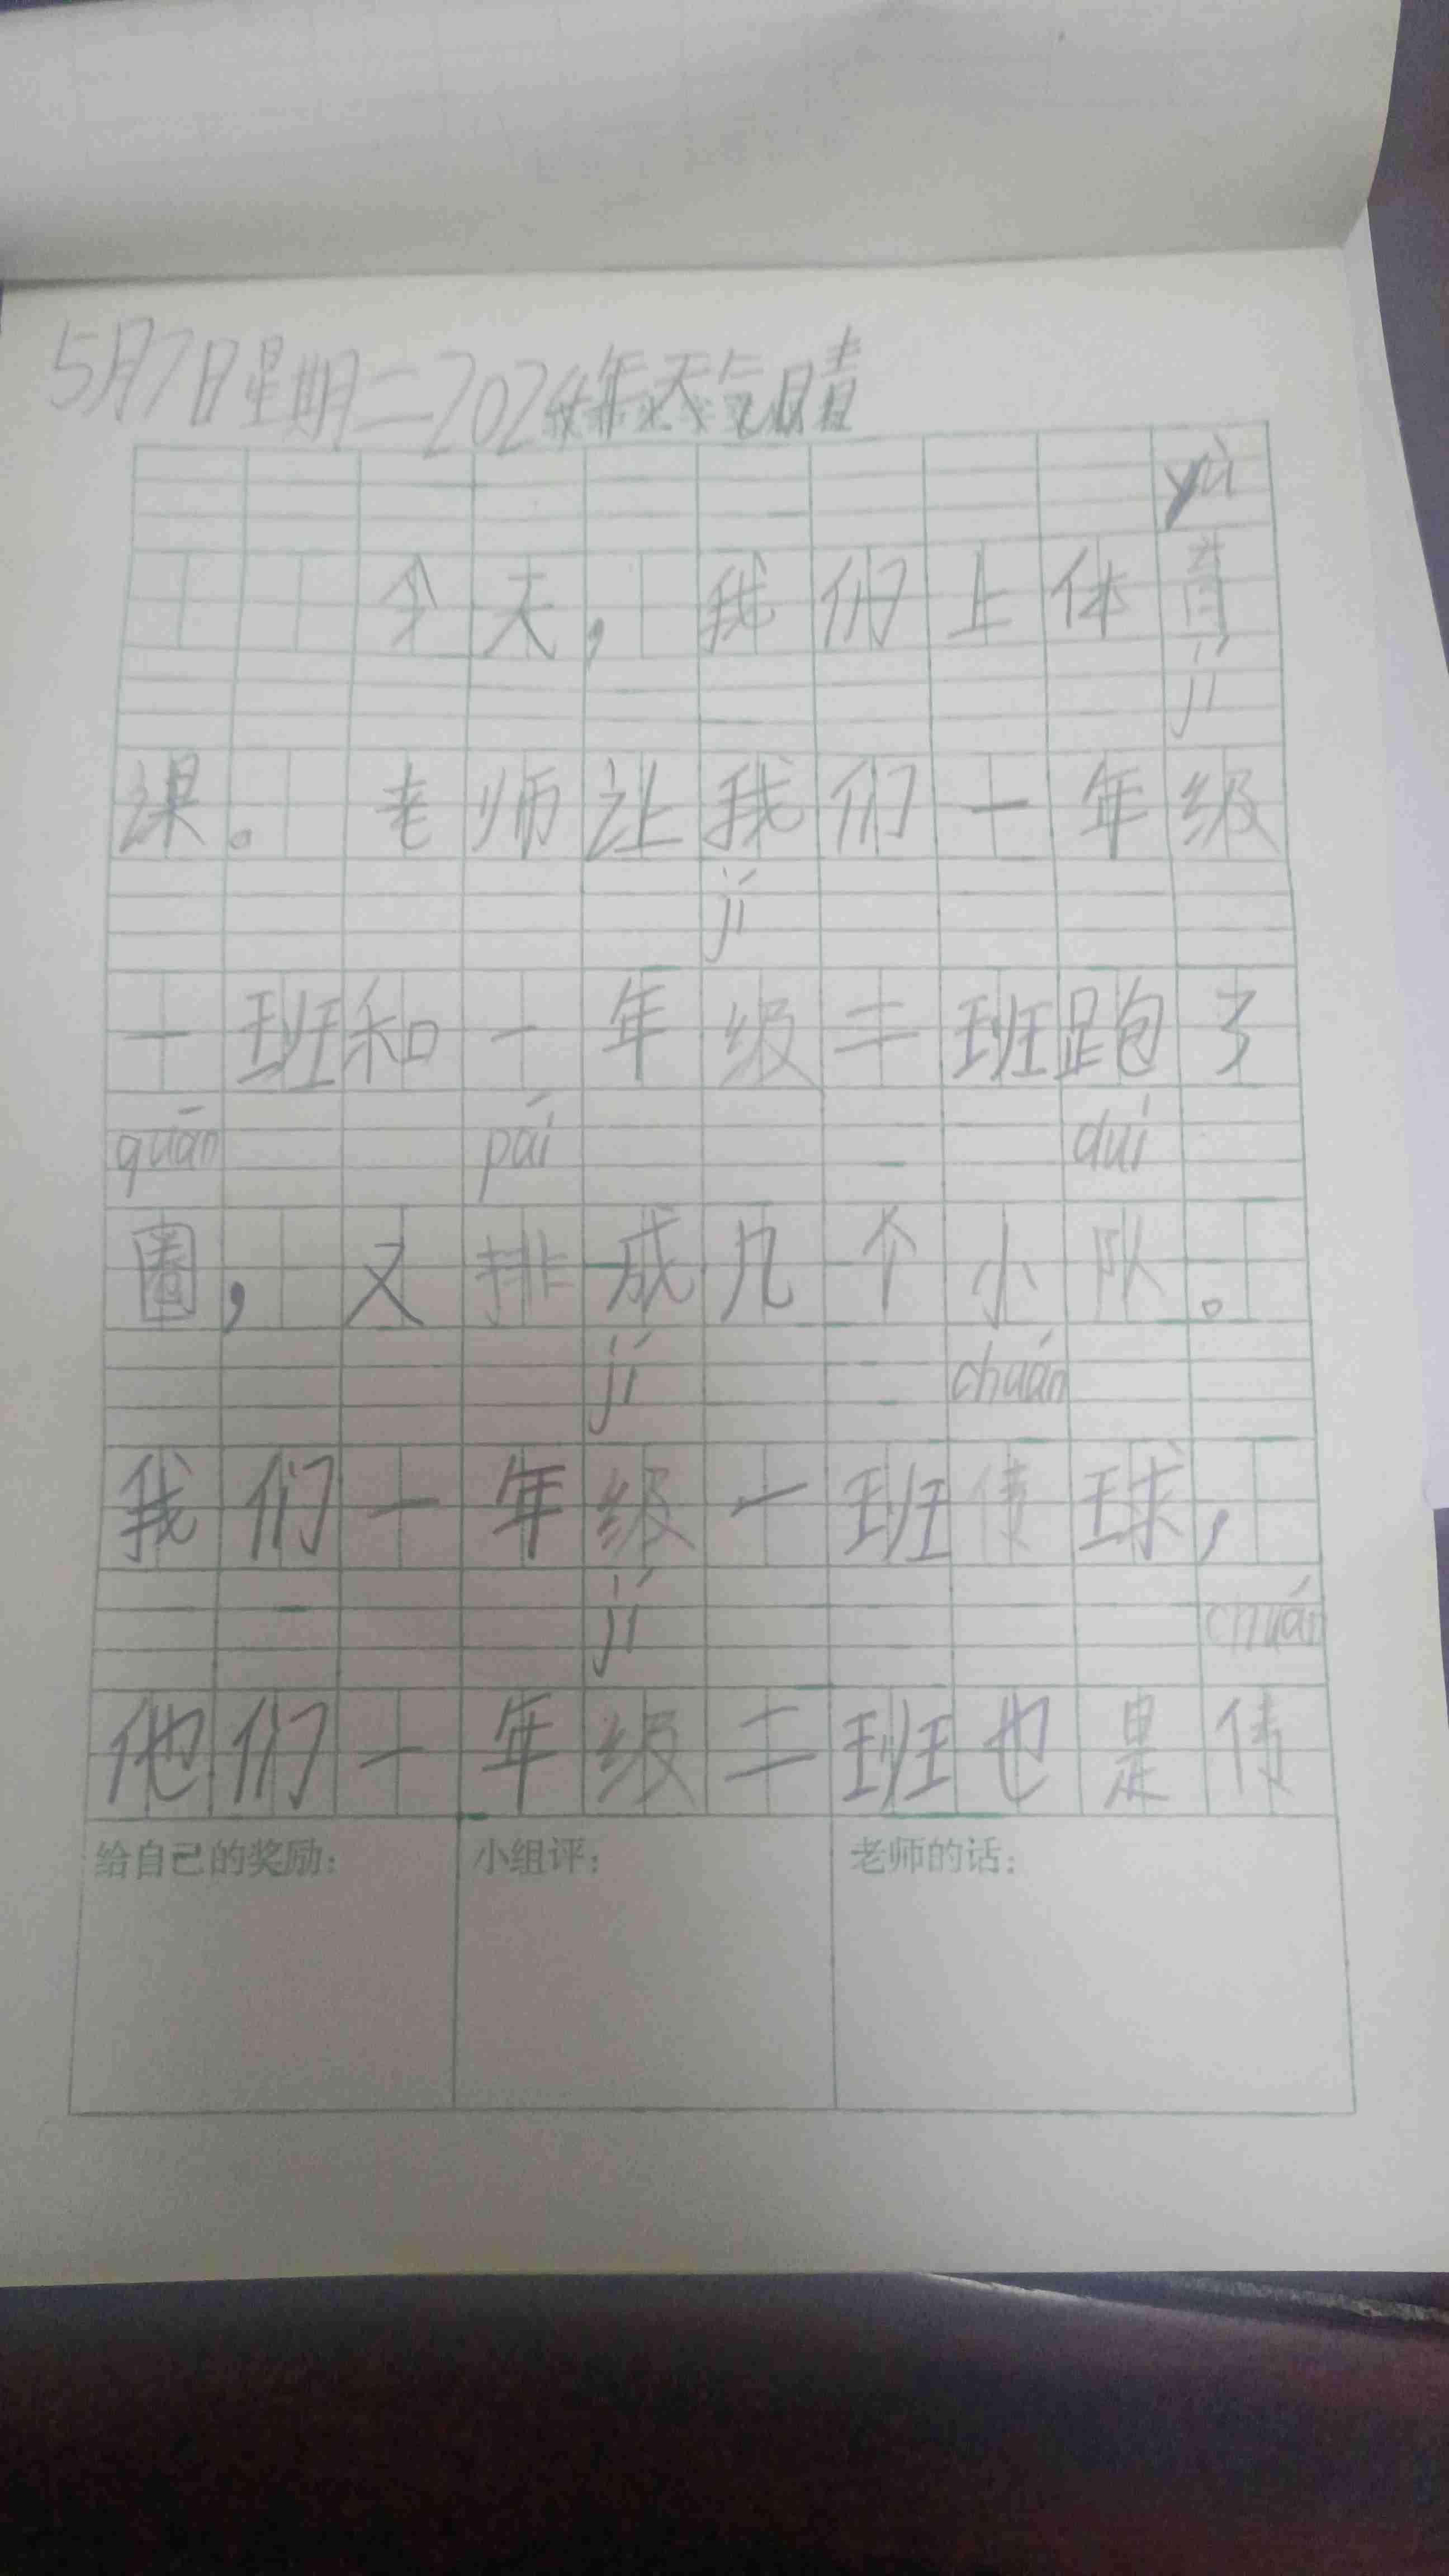 5月7日星期二2024年天气晴
yù
今天,我们上体育
jí
课。老师让我们一年级
jí
一班和一年级二班跑了
quān pái duì
圈,又排成几个小队。
jí chuán
我们一年级一班传球,
jí chuán
他们一年级二班也是传
给自己的奖励: 小组评: 老师的话: